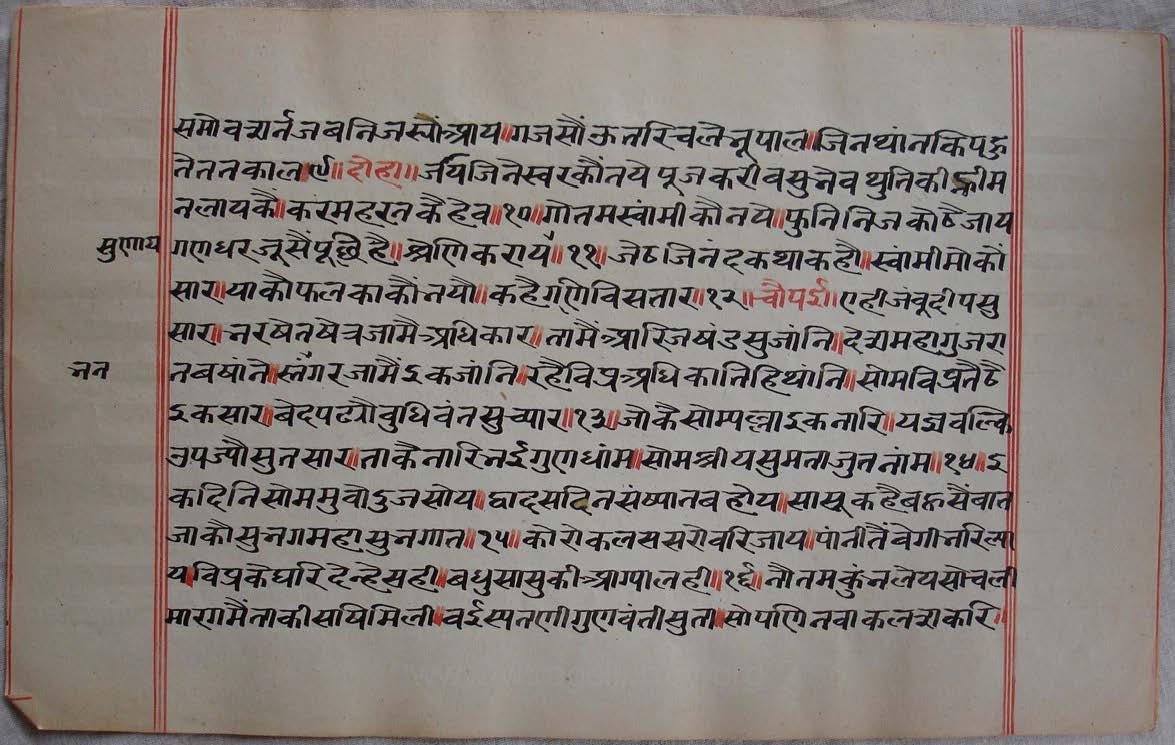 समोवशर्न जब निजस्यौं आय॥गजसौं ऊतरि चले नृपाल॥जिनथांनकि पहु
ते ततकाल॥९॥दोहा॥जर्यजिनेस्वरकौं नये पूज करी वसुभेव थुति कीन्ही म
नलायकैं॥करम हरत कै हेव॥१०॥गोतमस्वांमी कौ नये॥फुनि निज कोठै जाय
सुणाय
गणधरजूसैं पूछिहै॥श्रेणिकराय॥११॥जेठजिनंदकथा कहौ॥स्वांमी मोकौं
सार॥याकौ फल काकौं नयौ॥कहै गणि विसतार॥१२॥चौपई॥एही जंबूदीप सु
सार॥नरषेतषेत्र जामै अधिकार॥तामैं आरिजषंड सुजांनि॥देश महा गुजरा
नन
त बषांन॥नगर जामैं इक जांनि॥रहै विप्र अधिका तिहि थांनि॥सोमविप्र तैठै
इक सार॥वेद पढ्यौ बुधिवंत सुच्यार॥१३॥जाकै सोमिल्ला इक नारि॥यज्ञवल्कि
उपज्यौ सुत सार॥ताकै नारि नई गुणधांम॥सोमश्रीय सुमता जुत नांम॥१४॥इ
क दिनि सोम मुवो दुज सोय॥द्वादस दिन संष्या तब होय॥सासू कहै बहूसैं बात
जाकौ सुनग महा सुनगात॥१५॥कोरो कलस सरोवरि जाय॥पांनीतैं वेगी नरि ला
य॥विप्रकै घरि देन्हे सही॥बधु सासुकी आग्या लही॥१६॥नौतम कुंन लेय सो चली
मारगमैं ताकी सषि मिली॥वईसतणी गुणवंती सुता॥सो पणि नवा कलश करि॥